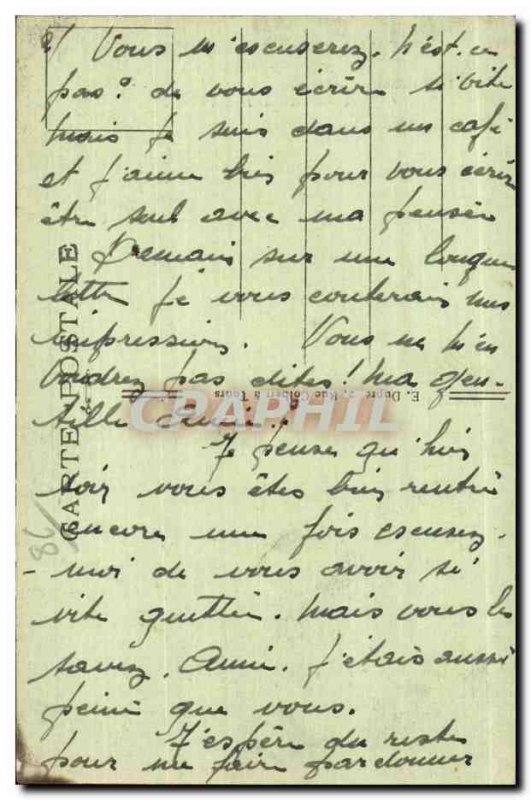 2/ Vous m'escuserez. n'est-ce
pas? de vous écrire si vite
mais je suis dans un café
et j'aime bien pour vous écrire
être seul avec ma pensée
Demain sur une longue
lettre je vous conterais mes
impressions. Vous ne m'en
voudrez pas dites! ma gen-
tille Amie!
Je pense qu'hier
soir vous êtes bien rentrée
encore une fois escusez-
-moi de vous avoir si
vite quittée. Mais vous le
savez. Amie. j'étais aussi
peiné que vous.
J'espère du reste
pour me faire pardonner
CARTE POSTALE
E. Dupré, 2, Rue Colbert à Tours
CPAPHIL